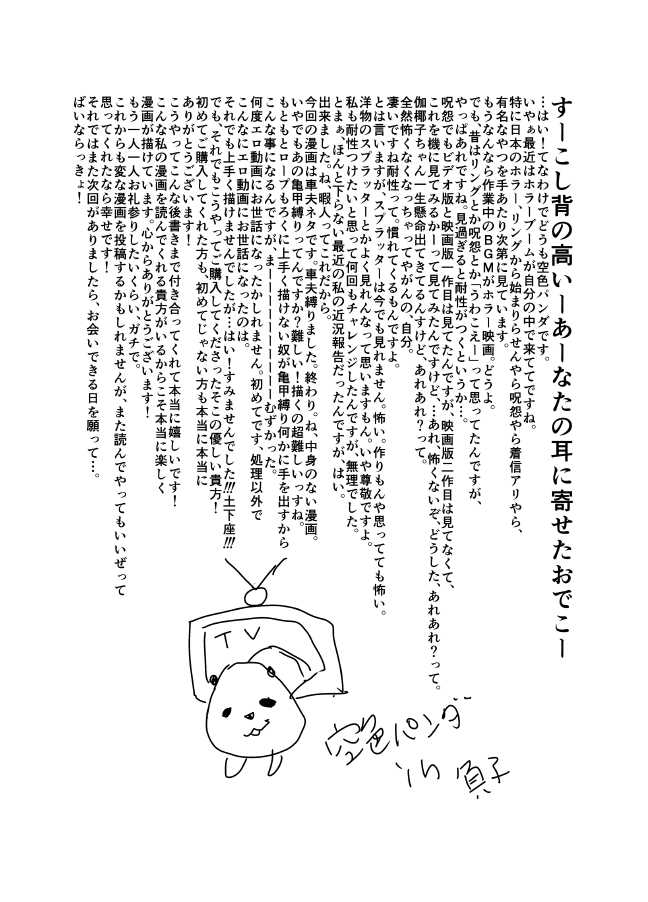 すーこし背の高いーあーなたの耳に寄せたおでこー
…はい！てなわけでどうも空色パンダです。
いやぁ最近はホラーブームが自分の中で来ててですね。
特に日本のホラー、リングから始まりらせんやら呪怨やら着信アリやら、
有名なやつを手あたり次第に見ています。
もうなんなら作業中のＢＧＭがホラー映画。どうよ。
でも、昔はリングとか呪怨とか「うわこえー」って思ってたんですが、
やっぱあれですね。見過ぎると耐性がつくというか…。
呪怨でもビデオ版と映画版一作目は見てたんですが、映画版二作目は見てなくて、
これを機に見てみるかーって見てみたんですけど、…あれ、怖くないぞ、どうした、あれあれ？って。
伽椰子ちゃん一生懸命出てきてるんすけど、あれあれ？って。
全然怖くなくなっちゃってやがんの、自分。
凄いですね耐性って。慣れてくるもんですよ。
とは言いますが、スプラッターは今でも見れません。怖い。作りもんや思ってても怖い。
洋物のスプラッターとかよく見れんなって思いますもん。いや尊敬ですよ。
私も耐性つけたいと思って何回もチャレンジしたんですが、無理でした。
とまぁ、ほんと下らない最近の私の近況報告だったんですが、はい。
出来ました。ね、暇人ってこれだから。
今回の漫画は車夫ネタです。車夫縛りました。終わり。ね、中身のない漫画。
いやでもあの亀甲縛りってんですか？難しい！描くの超難しいっすね。
もともとロープもろくに上手く描けない奴が亀甲縛り何かに手を出すから
こんな事になるんですが、まーーーーーーーーーむずかった。
何度エロ動画にお世話になったかしれません。初めてです、処理以外で
こんなにエロ動画にお世話になったのは。
それでも上手く描けませんでしたが…はい！すみませんでした!!!土下座!!!
でも、それでもこうやってご購入してくださったそこの優しい貴方！
初めてご購入してくれた方も、初めてじゃない方も本当に本当に
ありがとうございます！
こうやってこんな後書きまで付き合ってくれて本当に嬉しいです！
こんな私の漫画を読んでくれる貴方がいるからこそ本当に楽しく
漫画が描けています。心からありがとうございます！
もう一人一人お礼参りしたいくらい、ガチで。
これからも変な漫画を投稿するかもしれませんが、また読んでやってもいいぜって
思ってくれたなら幸せです！
それではまた次回がありましたら、お会いできる日を願って…。
ばいならっきょ！
TV
空色パンダ
in 貞子